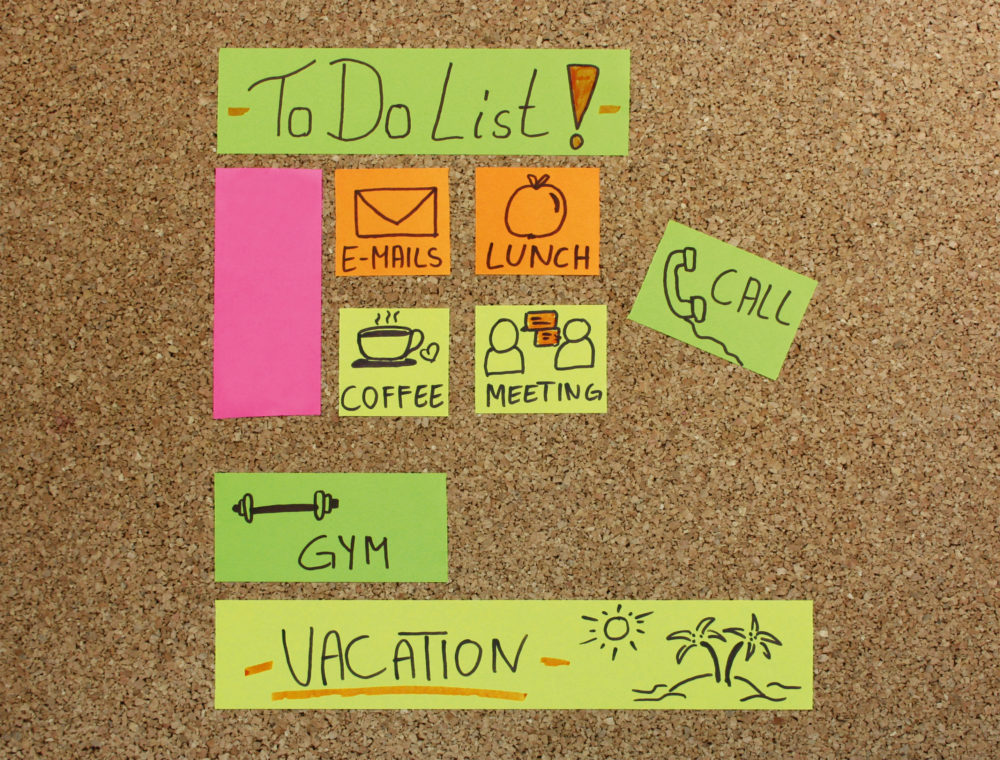 - To Do List! -
E-MAILS
LUNCH
CALL
COFFEE
MEETING
GYM
- VACATION -